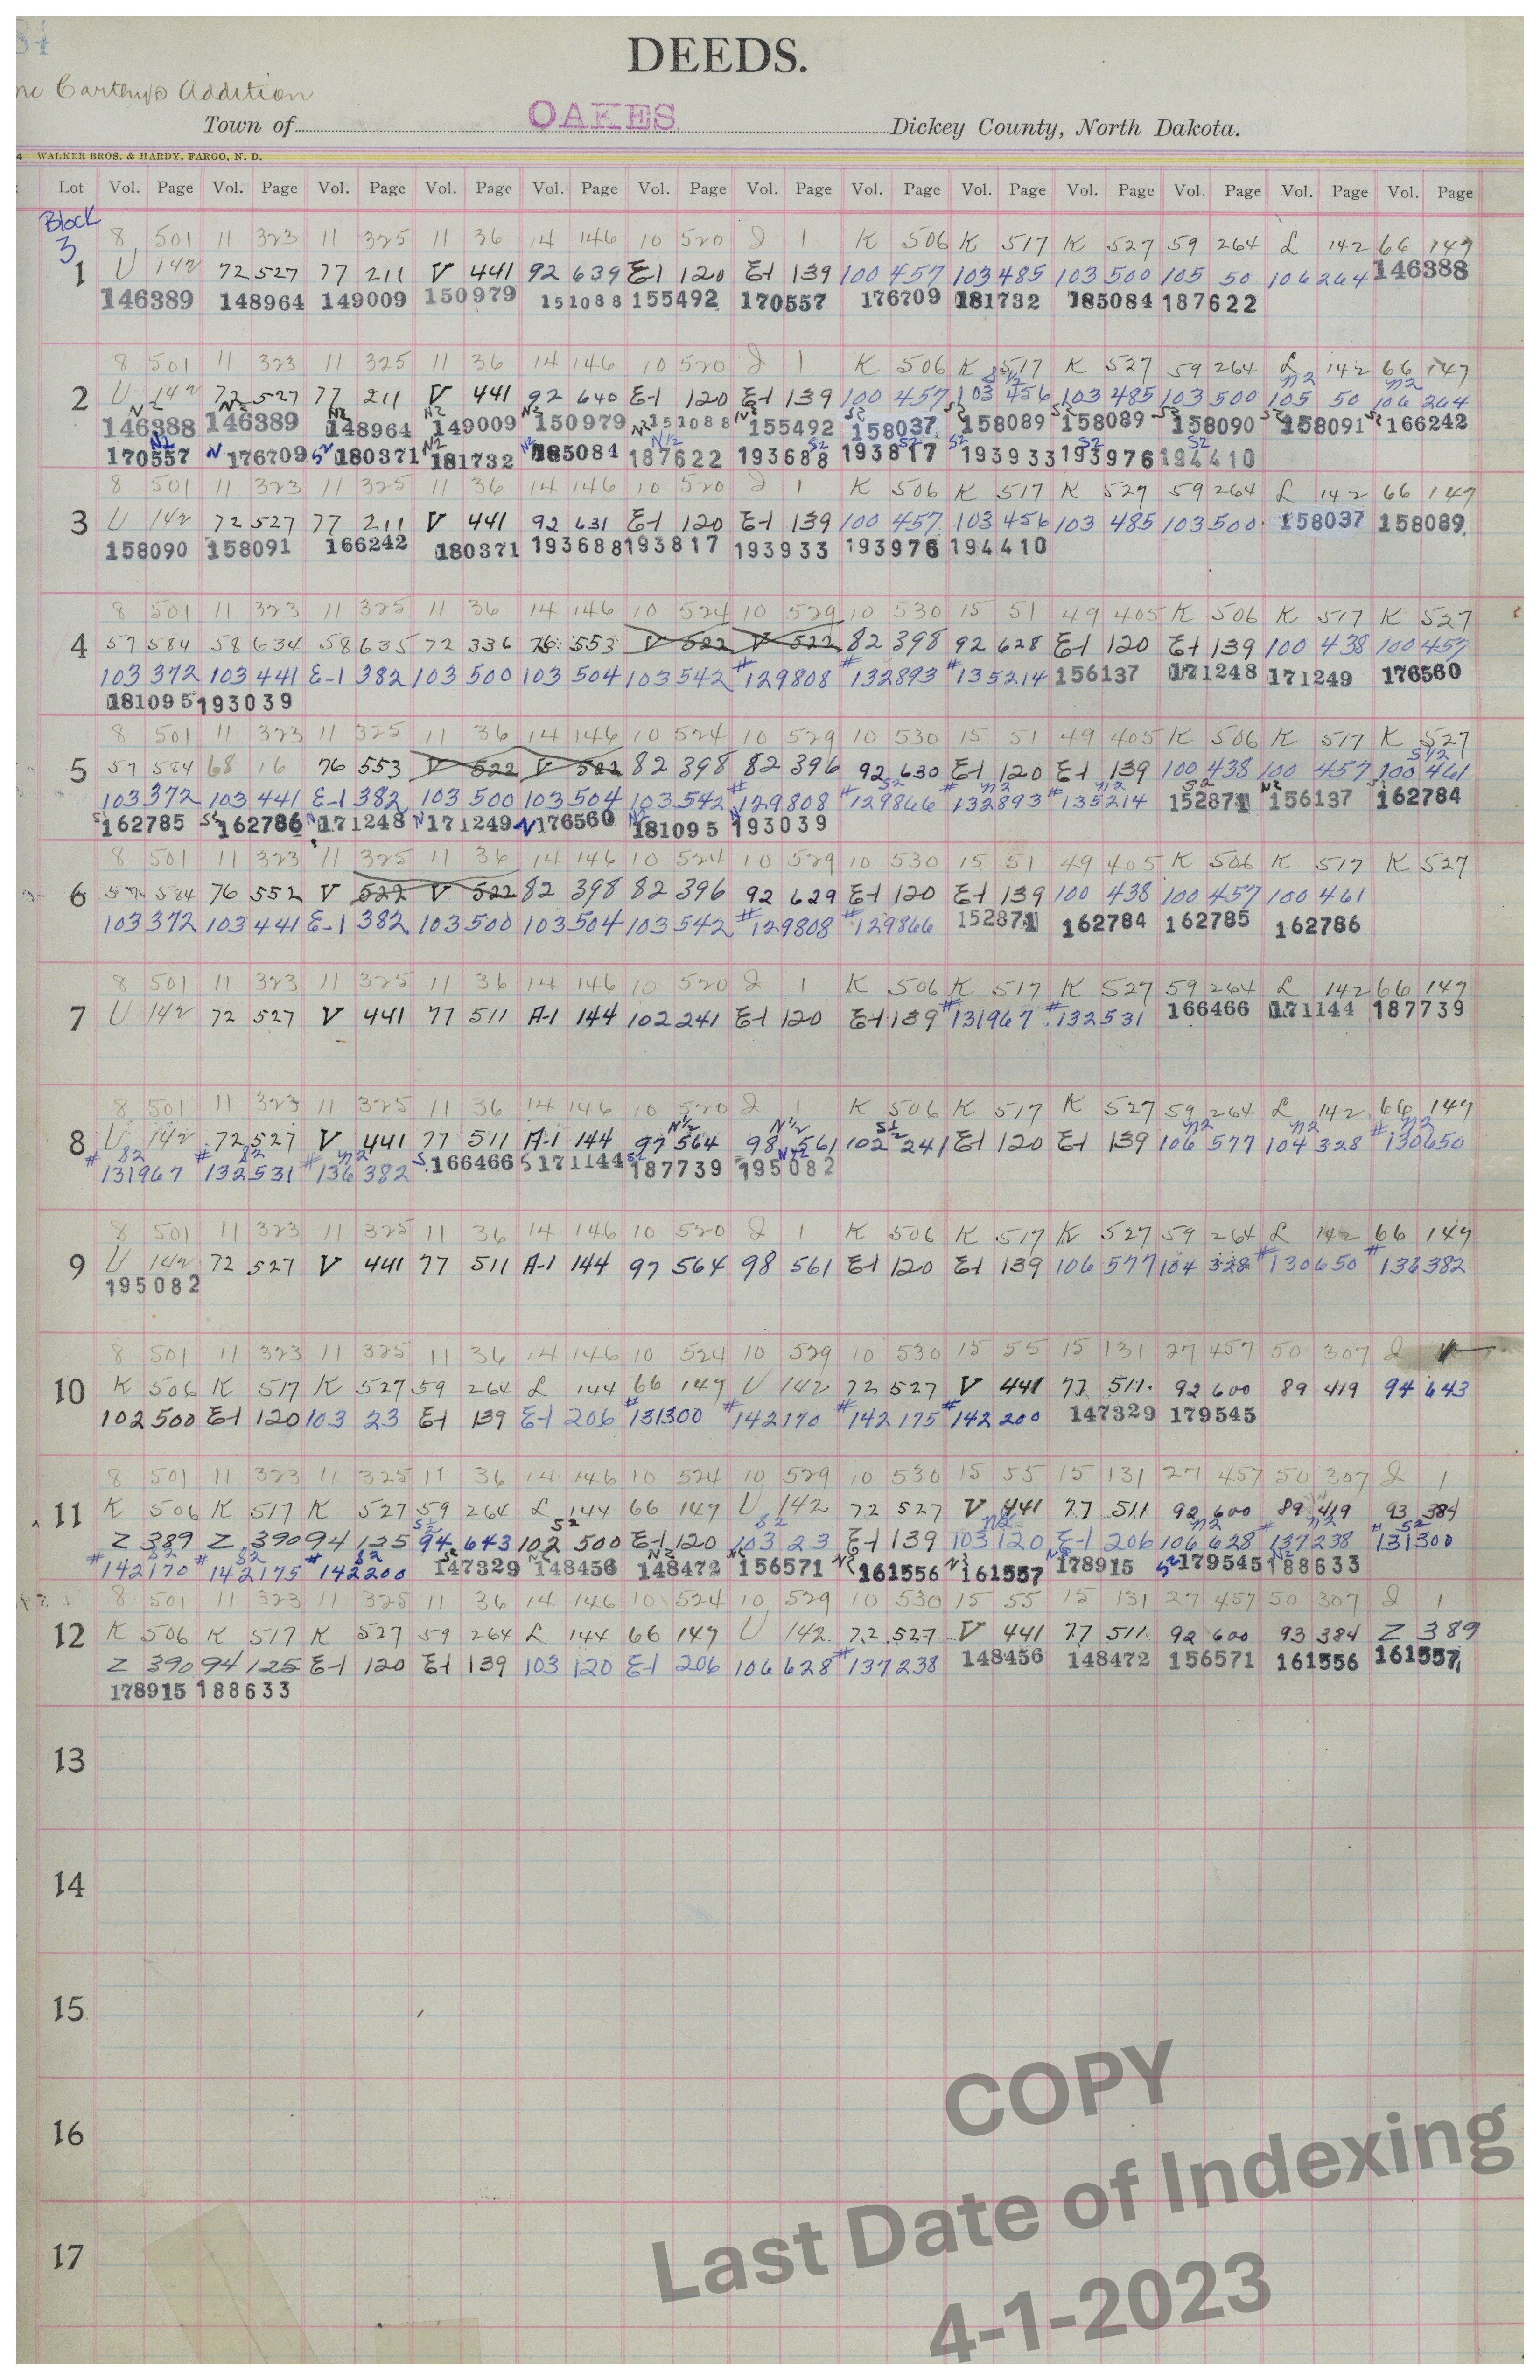 DEEDS.
Carthy's Addition
Town of OAKES Dickey County, North Dakota.
WALKER BROS. & HARDY, FARGO, N. D.
Lot Vol. Page Vol. Page Vol. Page Vol. Page Vol. Page Vol. Page Vol. Page Vol. Page Vol. Page Vol. Page Vol. Page Vol. Page Vol. Page
Block
3
8 501 11 323 11 325 11 36 14 146 10 520 J 1 K 506 K 517 K 527 59 264 L 142 66 147
1 U 142 72 527 77 211 V 441 92 639 E-1 120 E-1 139 100 457 103 485 103 500 105 50 106 264 146388
146389 148964 149009 150979 151088 155492 170557 176709 181732 185084 187622
8 501 11 323 11 325 11 36 14 146 10 520 J 1 K 506 K 517 K 527 59 264 L 142 66 147
S 1/2 N2 N2
2 U 142 72 527 77 211 V 441 92 640 E-1 120 E-1 139 100 457 103 456 103 485 103 500 105 50 106 264
N2 146388 N2 146389 N2 148964 N2 149009 N2 150979 N2 151088 N2 155492 S2 158037 S2 158089 S2 158089 S2 158090 S2 158091 S2 166242
N2 170557 N 176709 S2 180371 N2 181732 N2 185084 N1/2 187622 S2 193688 S2 193817 S2 193933 S2 193976 S2 194410
8 501 11 323 11 325 11 36 14 146 10 520 J 1 K 506 K 517 K 527 59 264 L 142 66 147
3 U 142 72 527 77 211 V 441 92 631 E-1 120 E-1 139 100 457 103 456 103 485 103 500 158037 158089
158090 158091 166242 180371 193688 193817 193933 193976 194410
8 501 11 323 11 325 11 36 14 146 10 524 10 529 10 530 15 51 49 405 K 506 K 517 K 527
4 57 584 58 634 58 635 72 336 76 553 V 522 V 522 82 398 92 628 E-1 120 E-1 139 100 438 100 457
103 372 103 441 E-1 382 103 500 103 504 103 542 #129808 #132893 #135214 156137 171248 171249 176560
181095 193039
8 501 11 323 11 325 11 36 14 146 10 524 10 529 10 530 15 51 49 405 K 506 K 517 K 527
S 1/2
5 57 584 68 16 76 553 V 522 V 522 82 398 82 396 92 630 E-1 120 E-1 139 100 438 100 457 100 461
103 372 103 441 E-1 382 103 500 103 504 103 542 #129808 S2 #129866 N2 #132893 N2 #135214 S2 152871 N2 156137 S2 162784
S2 162785 S2 162786 N 171248 N 171249 N 176560 N2 181095 N 193039
8 501 11 323 11 325 11 36 14 146 10 524 10 529 10 530 15 51 49 405 K 506 K 517 K 527
6 57 584 76 552 V 522 V 522 82 398 82 396 92 629 E-1 120 E-1 139 100 438 100 457 100 461
103 372 103 441 E-1 382 103 500 103 504 103 542 #129808 #129866 152871 162784 162785 162786
8 501 11 323 11 325 11 36 14 146 10 520 J 1 K 506 K 517 K 527 59 264 L 142 66 147
7 U 142 72 527 V 441 77 511 A-1 144 102 241 E-1 120 E-1 139 #131967 #132531 166466 171144 187739
8 501 11 323 11 325 11 36 14 146 10 520 J 1 K 506 K 517 K 527 59 264 L 142 66 147
N 1/2 N 1/2 S 1/2 N2 N2 N2
8 U 142 72 527 V 441 77 511 A-1 144 97 564 98 561 102 241 E-1 120 E-1 139 106 577 104 328 #130650
# S2 131967 # S2 132531 # N2 136382 S 166466 S 171144 S2 187739 N 1/2 195082
8 501 11 323 11 325 11 36 14 146 10 520 J 1 K 506 K 517 K 527 59 264 L 142 66 147
9 U 142 72 527 V 441 77 511 A-1 144 97 564 98 561 E-1 120 E-1 139 106 577 104 328 #130650 #136382
195082
8 501 11 323 11 325 11 36 14 146 10 524 10 529 10 530 15 55 15 131 27 457 50 307 J 1
10 K 506 K 517 K 527 59 264 L 144 66 147 U 142 72 527 V 441 77 511 92 600 89 419 94 643
102 500 E-1 120 103 23 E-1 139 E-1 206 #131300 #142170 #142175 #142200 147329 179545
8 501 11 323 11 325 11 36 14 146 10 524 10 529 10 530 15 55 15 131 27 457 50 307 J 1
11 K 506 K 517 K 527 59 264 L 144 66 147 U 142 72 527 V 441 77 511 92 600 89 419 93 384
Z 389 Z 390 94 125 S 1/2 94 643 S2 102 500 E-1 120 S2 103 23 E-1 139 N2 103 120 E-1 206 N2 106 628 # N2 137238 # S2 131300
# S2 142170 # S2 142175 # S2 142200 S2 147329 N2 148456 N2 148472 N2 156571 N2 161556 N2 161557 N2 178915 S2 179545 N2 188633
8 501 11 323 11 325 11 36 14 146 10 524 10 529 10 530 15 55 15 131 27 457 50 307 J 1
12 K 506 K 517 K 527 59 264 L 144 66 147 U 142 72 527 V 441 77 511 92 600 93 384 Z 389
Z 390 94 125 E-1 120 E-1 139 103 120 E-1 206 106 628 #137238 148456 148472 156571 161556 161557
178915 188633
13
14
15
16
17
COPY
Last Date of Indexing
4-1-2023